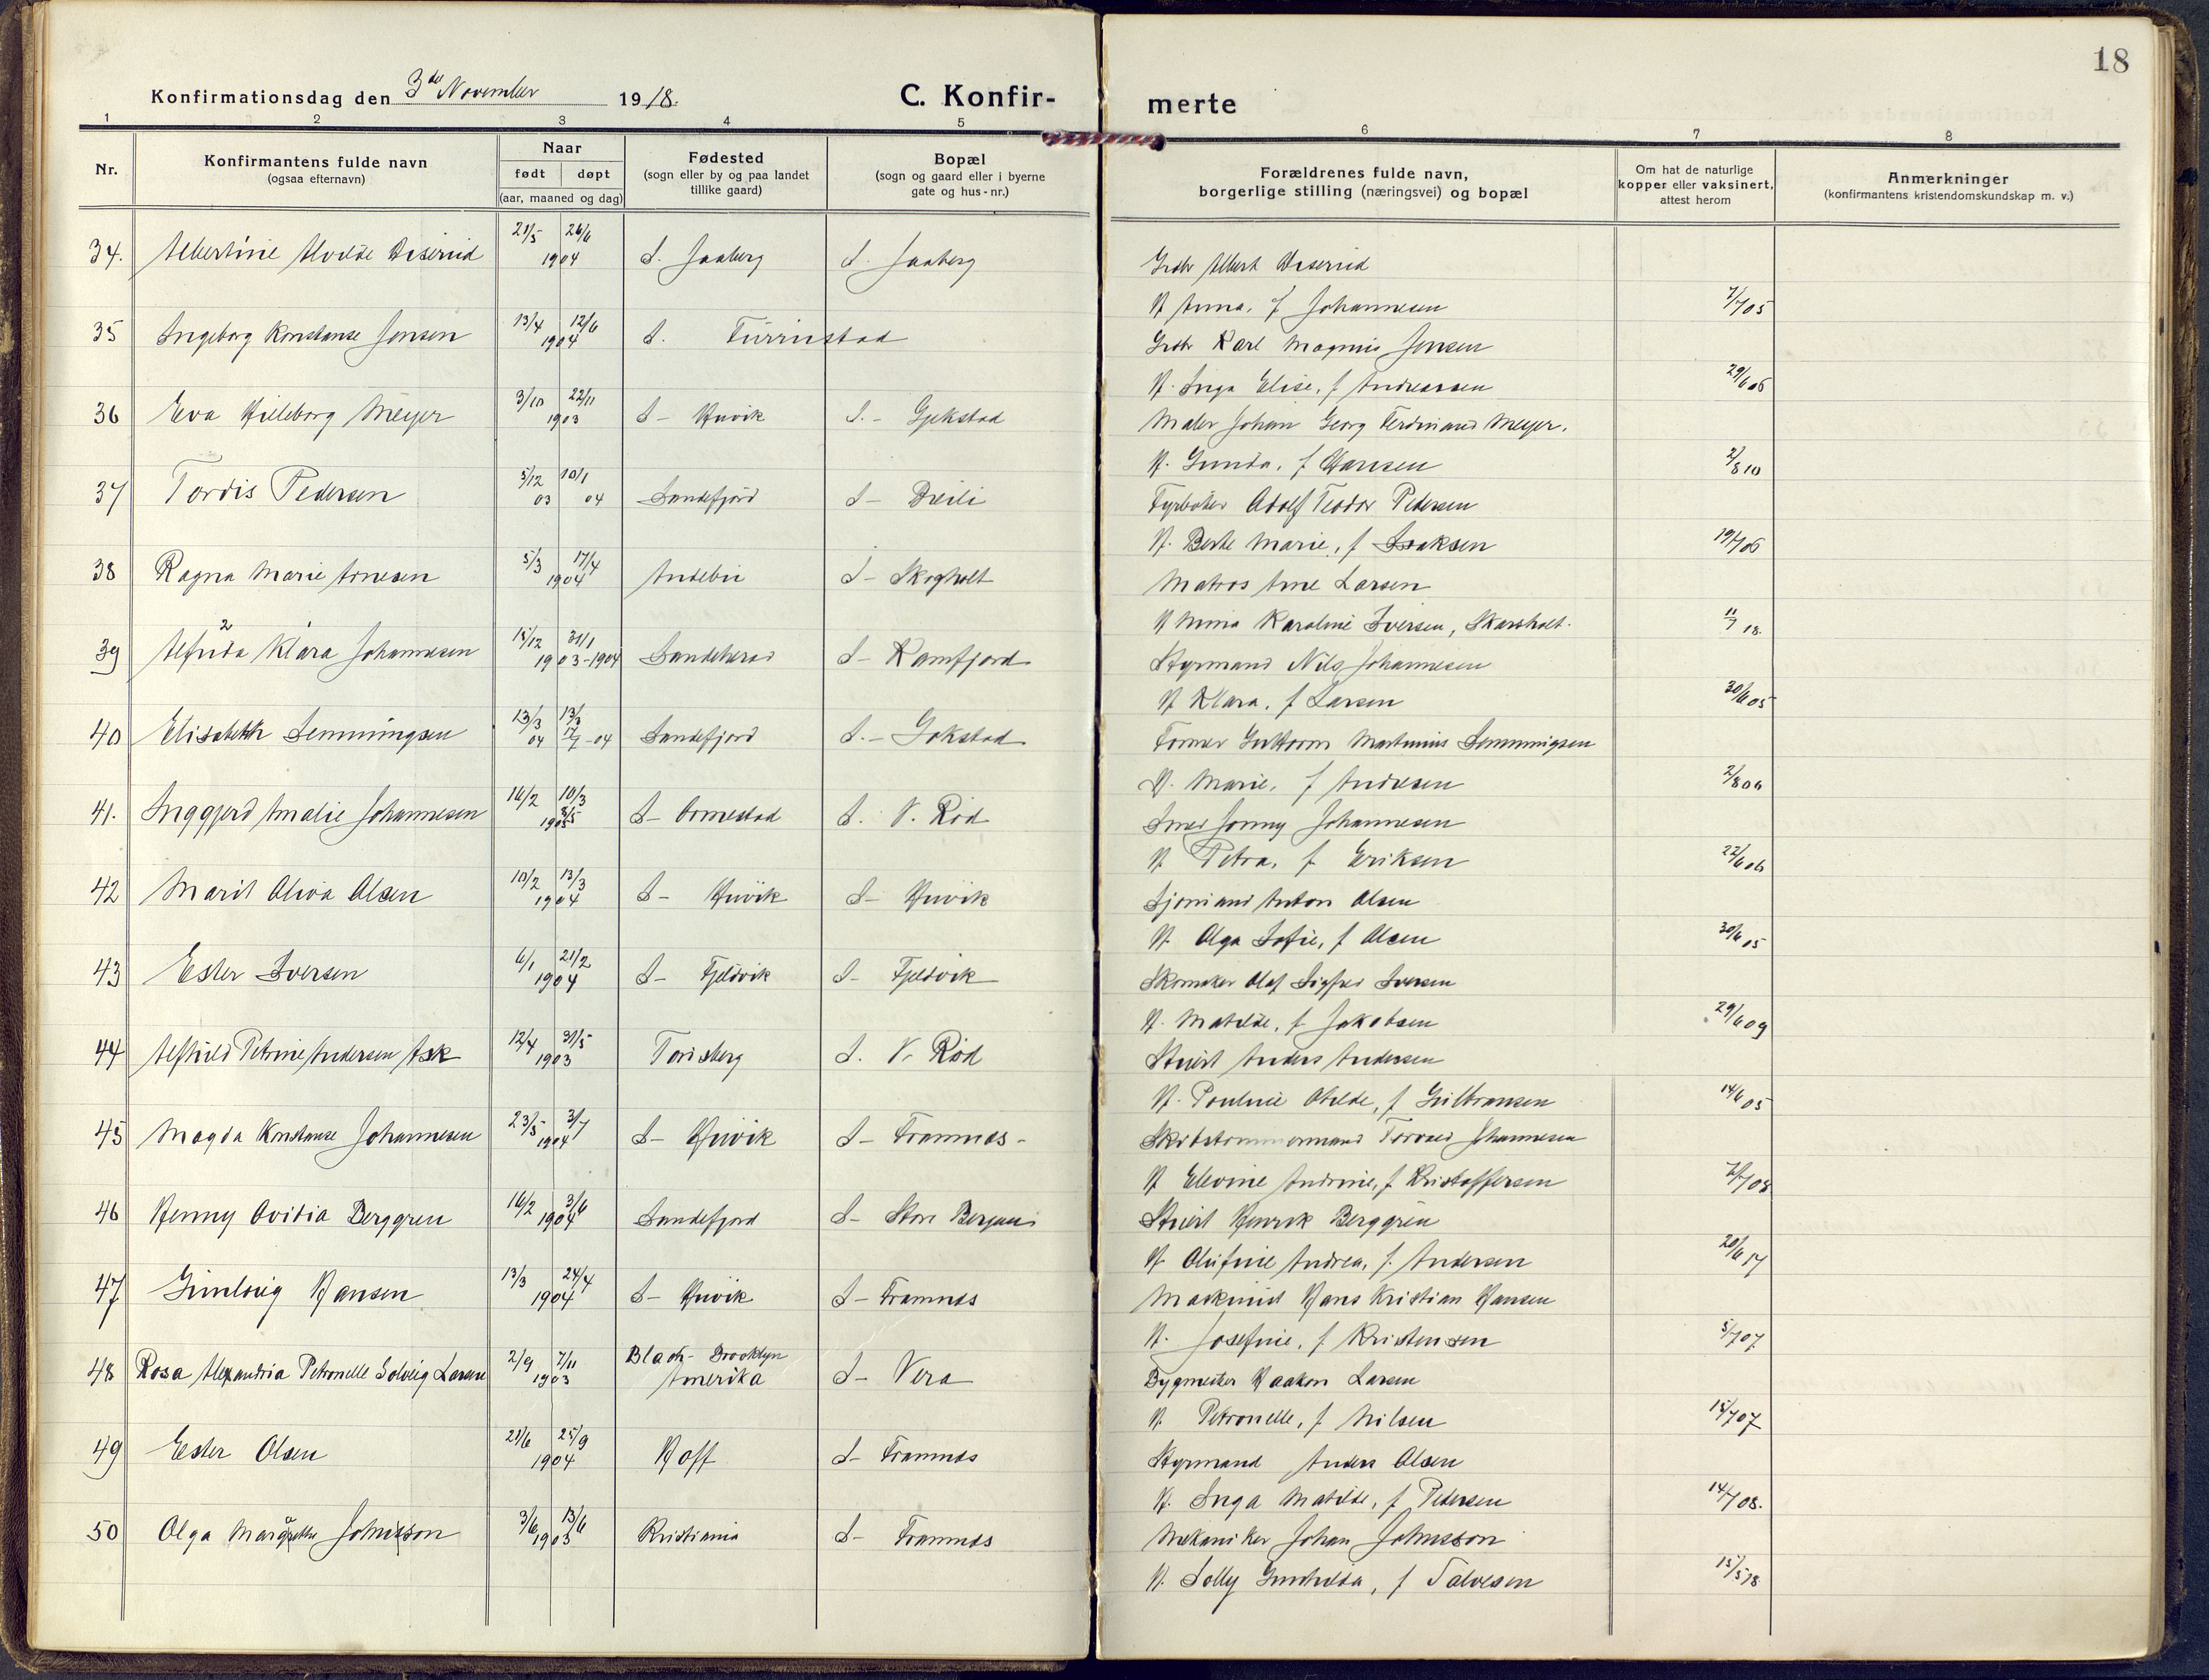 18
Konfirmationsdag den 3de November 1918.
C. Konfir-
merte
1 2 3 4 5 6 7 8
Nr.
Konfirmantens fulde navn
(ogsaa efternavn)
Naar
født døpt
(aar, maaned og dag)
Fødested
(sogn eller by og paa landet
tillike gaard)
Bopæl
(sogn og gaard eller i byerne
gate og hus-nr.)
Forældrenes fulde navn,
borgerlige stilling (næringsvei) og bopæl
Om hat de naturlige
kopper eller vaksinert,
attest herom
Anmerkninger
(konfirmantens kristendomskundskap m. v.)
34. Albertine Alvilde Viserud 21/5 26/6 1904 S. Jaaberg S. Jaaberg Grdbr Albert Viserud
H Anna, f Johannesen 7/7 05
35 Ingeborg Konstanse Jensen 13/4 12/6 1904 S. Furrustad Grdbr Karl Magnus Jensen
H. Inga Elise, f Andreassen 29/6 06
36 Eva Hilleborg Meyer 3/10 22/11 1903 S- Huvik S.- Gjekstad Maler Johan Georg Ferdinand Meyer.
H. Gunda, f Hansen 2/8 10
37 Tordis Pedersen 5/12 03 10/1 04 Sandefjord S- Breili Fyrbøter Adolf Teodor Pedersen
H. Berte Marie, f Isaksen 19/7 06
38 Ragna Marie Arnesen 5/3 17/4 1904 Andebu S- Skogholt Matros Arne Larsen
H Mina Karoline Iversen, Skarsholt. 11/7 18.
39 Alfrida Klara Johannesen 15/12 31/1 1903-1904 Sandeherad S- Kamfjord Styrmand Nils Johannesen
H Klara, f Larsen 30/6 05
40 Elisabeth Lemmingsen 13/3 04 17/7-04 Sandefjord S.- Gokstad Former Guttorm Martinius Lemmingsen
H. Marie, f Andresen 2/8 06
41. Inggjerd Amalie Johannesen 16/2 10/3 S- Ormestad S. V. Rød Smed Jonny Johannesen
H Petra, f Eriksen 22/6 06
42 Marit Oliva Olsen 10/2 13/3 1904 S- Huvik S- Huvik Sjømand Anton Olsen
H Olga Sofie, f Olsen 30/6 05
43 Ester Iversen 6/1 21/2 1904 S- Fjeldvik S- Fjeldvik Skomaker Olaf Sigfred Iversen
H. Matilde, f Jakobsen 29/6 09
44 Alfhild Petrine Andersen Ask 12/4 31/5 1903 Tønsberg S. V. Rød Stuert Anders Andersen
H. Pouline Otilde, f Gulbransen 14/6 05
45 Magda Konstanse Johannesen 23/5 3/7 1904 S- Huvik S- Framnæs- Skibstømmermand Torvald Johannesen
H Elevine Andrine, f Kristoffersen
46 Henny Ovidia Berggren 16/2 3/6 1904 Sandefjord S- Store Bergan Stuert Henrik Berggren
H Olufine Andrea, f. Andersen 20/6 17
47 Gunlaug Hansen 13/3 24/4 1904 S- Huvik S- Framnæs Maskinist Hans Kristian Hansen
H. Josefine, f Kristensen 5/7 07
48 Rosa Alexandria Petronelle Solveig Larsen 2/9 7/11 1903 Brooklyn Amerika S- Vera Bygmester Haakon Larsen
H. Petronelle, f Nilsen 15/7 07
49 Ester Olsen 21/6 25/9 1904 Hoff S- Framnæs Styrmand Anders Olsen
H. Inga Matilde, f Pedersen 14/7 08.
50 Olga Margrethe Johnsson 3/6 13/6 1903 Kristiania S- Framnæs Mekaniker Johan Johnsson
H. Solly Gunhilda, f Salvesen 15/5 18